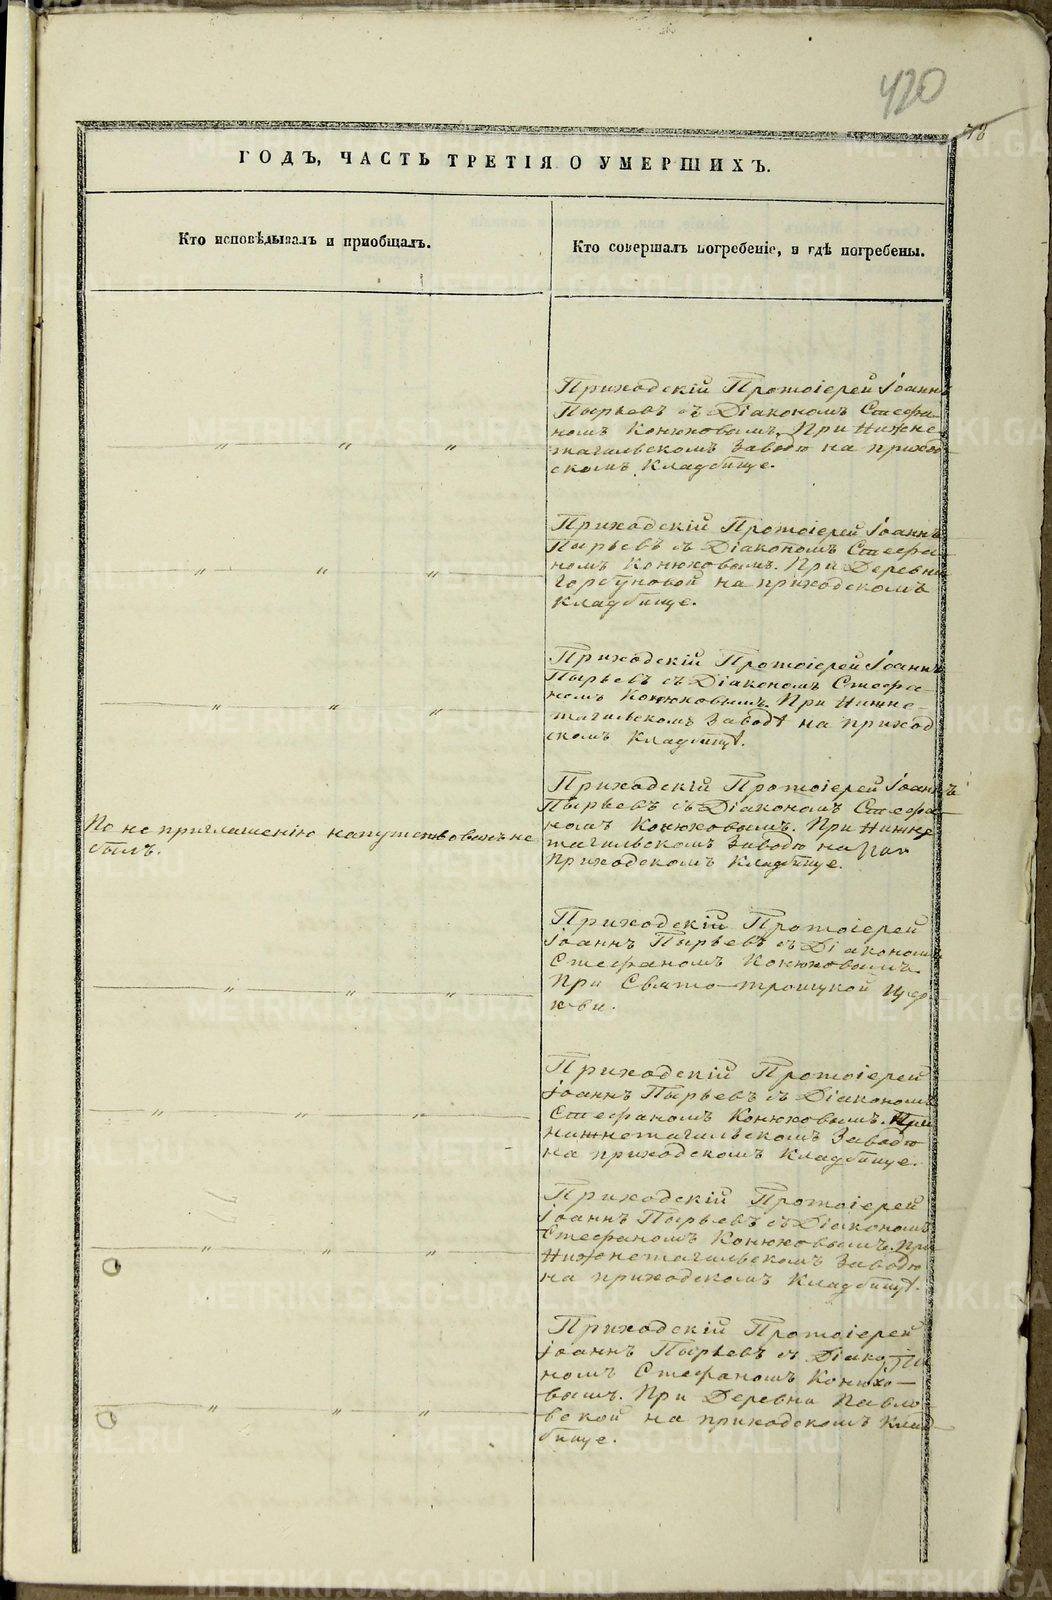 420
78
ГОДЪ, ЧАСТЬ ТРЕТІЯ О УМЕРШИХЪ.
Кто исповѣдывалъ и приобщалъ.
Кто совершалъ погребеніе, и гдѣ погребены.
Приходскій Протоіерей Іоаннъ
Пырьевъ съ Діакономъ Стефа-
номъ Конюховымъ. При Нижне-
тагильскомъ Заводѣ на приход-
скомъ Кладбище.
Приходскій Протоіерей Іоаннъ
Пырьевъ съ Діакономъ Стефа-
номъ Конюховымъ. При Деревни
Горбуновой на приходскомъ
Кладбище.
Приходскій Протоіерей Іоаннъ
Пырьевъ съ Діакономъ Стефа-
номъ Конюховымъ. При Нижне-
тагильскомъ Заводѣ на приход
скомъ Кладбищѣ.
По не приглашенію напутствованъ не
былъ.
Приходскій Протоіерей Іоаннъ
Пырьевъ съ Діакономъ Стефа-
номъ Конюховымъ. При Нижне
тагильскомъ Заводѣ на
Приходскомъ Кладбище.
Приходскій Протоіерей
Іоаннъ Пырьевъ съ Діакономъ
Стефаномъ Конюховымъ
При Свято-троицкой Цер
кви.
Приходскій Протоіерей
Іоаннъ Пырьевъ съ Діакономъ
Стефаномъ Конюховымъ. При
нижнетагильскомъ Заводѣ
на приходскомъ Кладбище.
Приходскій Протоіерей
Іоаннъ Пырьевъ съ Діакономъ
Стефаномъ Конюховымъ. При
Нижнетагильскомъ Заводѣ
на приходскомъ Кладбищѣ.
Приходскій Протоіерей
Іоаннъ Пырьевъ съ Діако
номъ Стефаномъ Конюхо-
вымъ. При Деревни Павло
вской на приходскомъ Клад-
бище.
METRIKI.GASO-URAL.RU